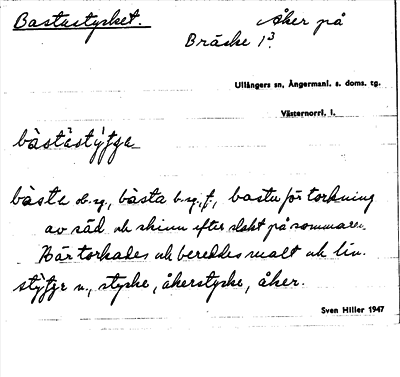 Bastustycket.
Åker på
Bräcke 1³.
Ullångers sn, Ångermanl. s. doms. tg.
Västernorrl. l.
bàstästy̆tje
bàsta ob.sg., bàsta b.sg., f., bastu för torkning
av säd och skinn efter slakt på sommaren.
Här torkades och bereddes malt och lin.
n., stycke, åkerstycke, åker.
Sven Hiller 1947